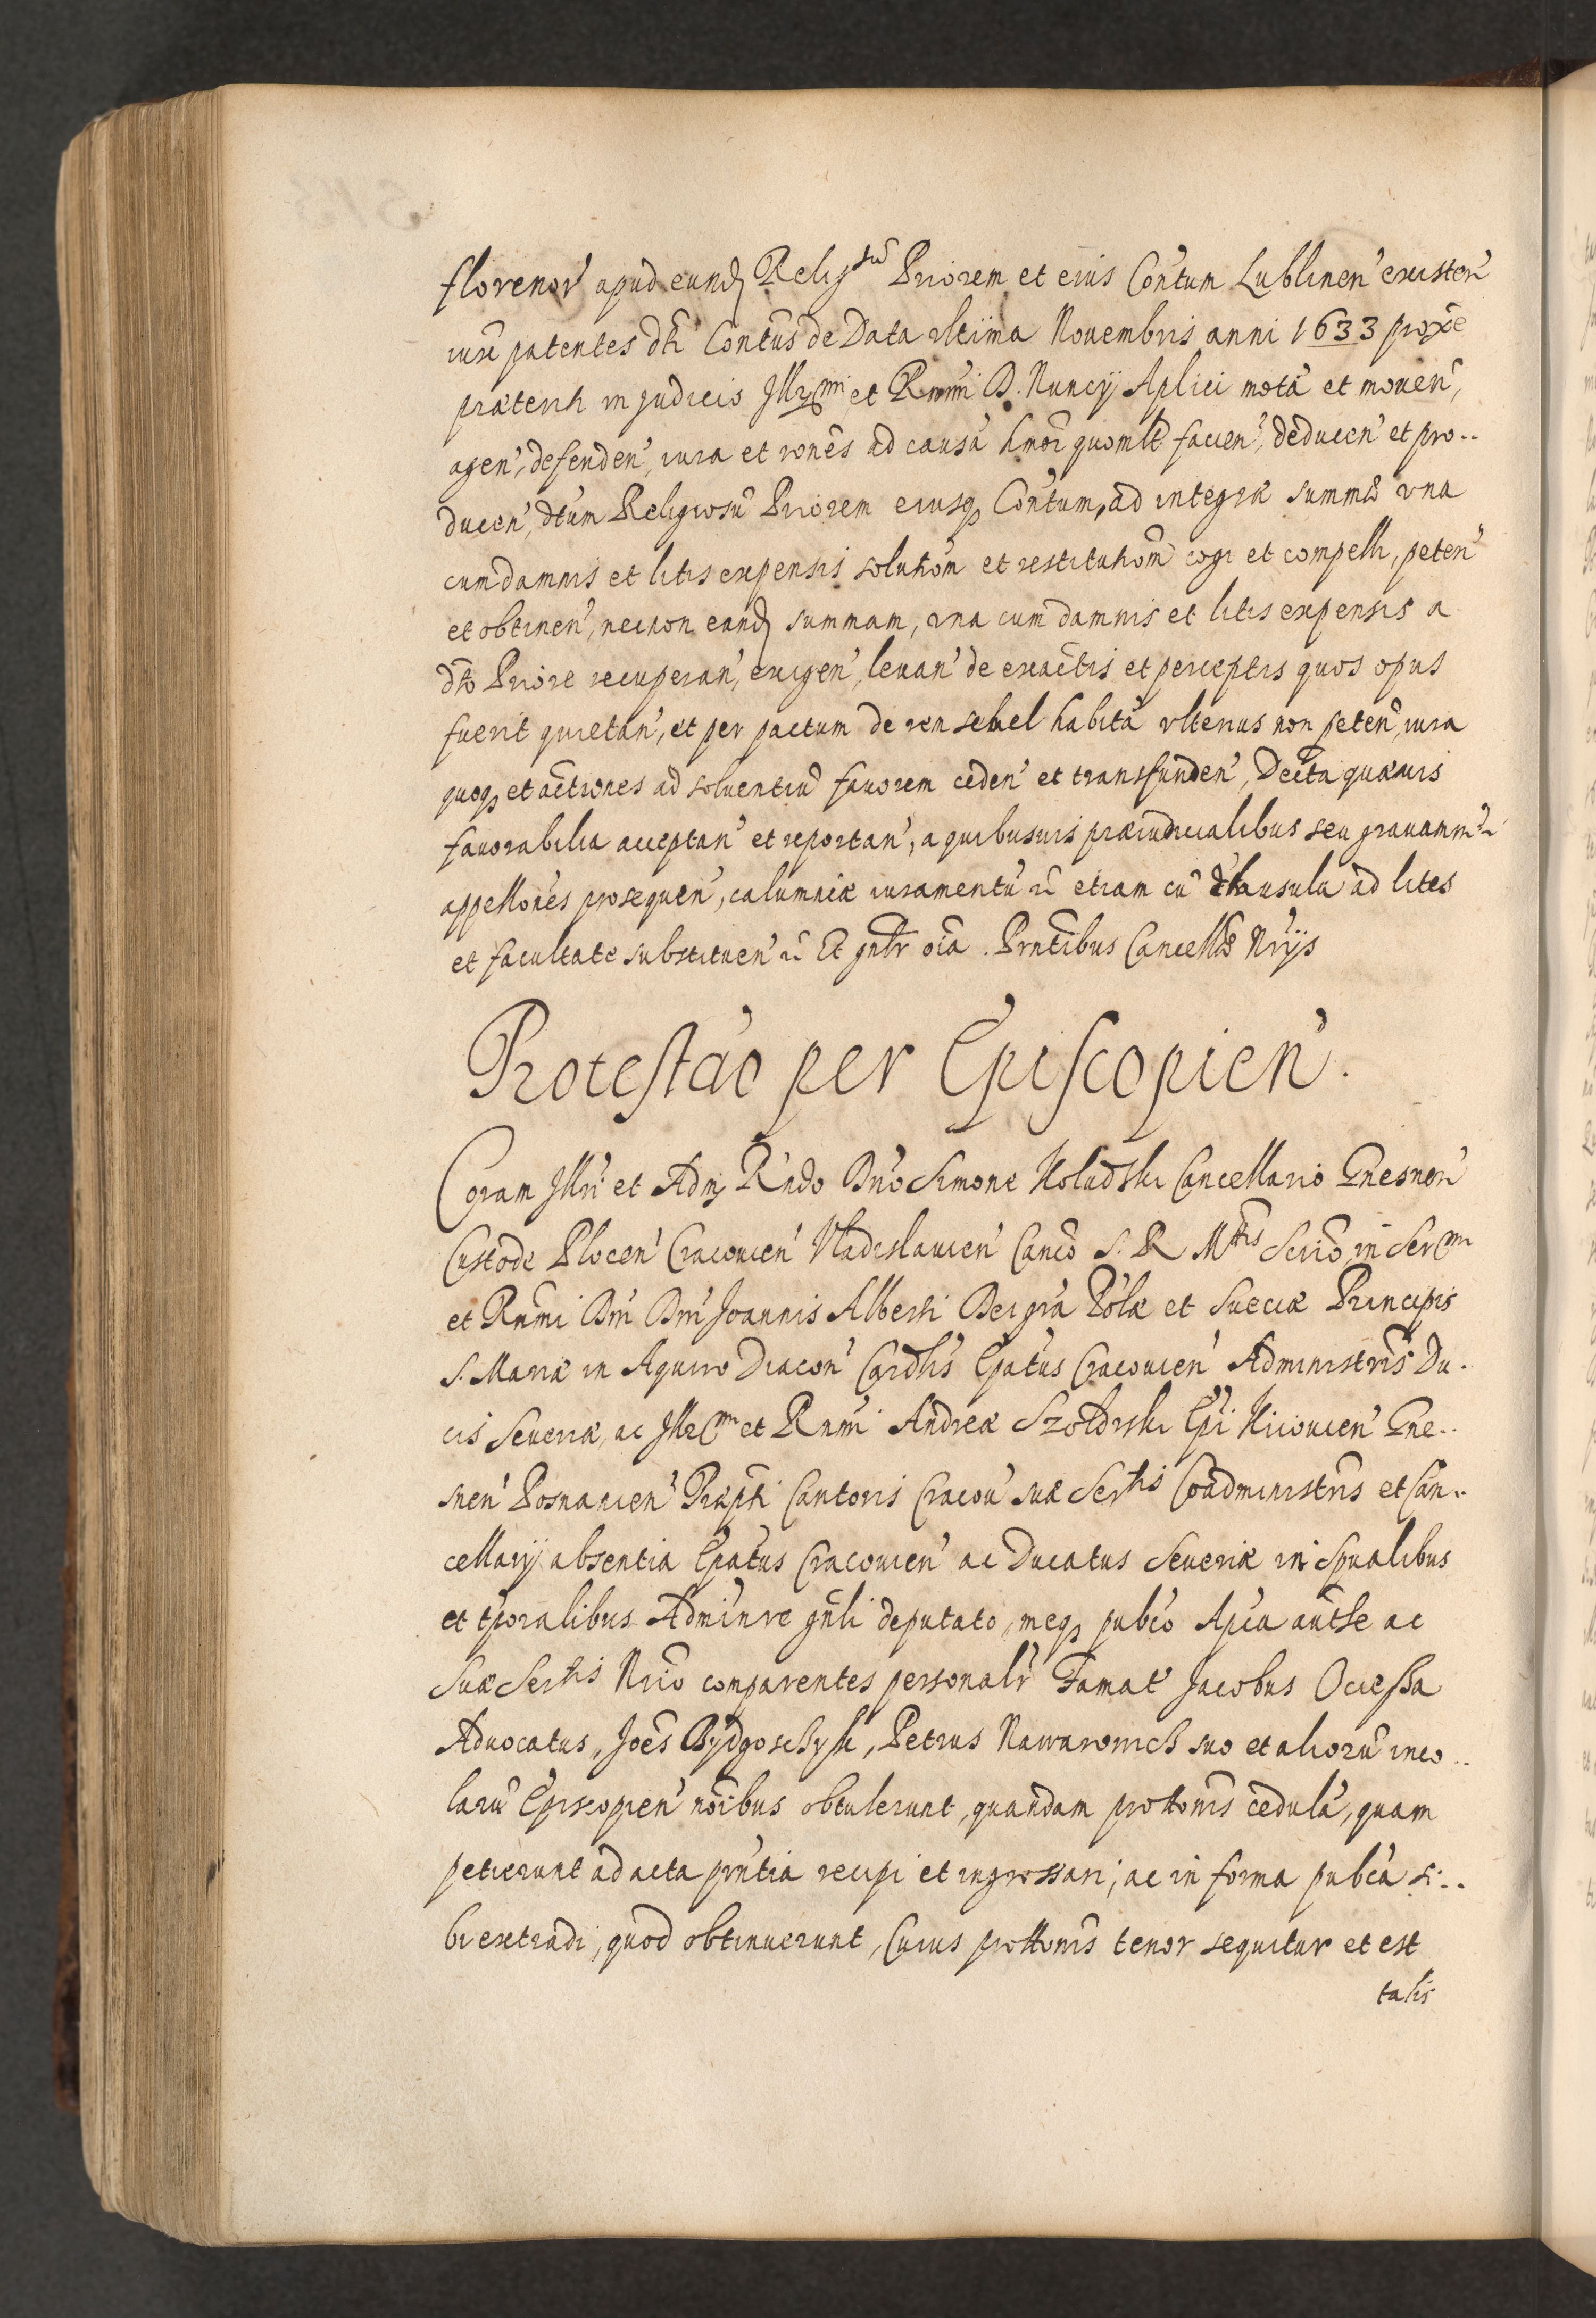 florenor̃ apud eund Relig sũ Priorem et eius Con̄tum Lublinen̄ existen̄
iuxe patentes dti Contūs de Data ultima Nouembris anni 1633 proxe
præteriti in judicio Illr̃mi et Rnmi D. Nuncÿ Aplici motã et mouen̄,
agen̄, defenden̄, iura et rones ad causã hmoi quomlt facien̄, deducen̄ et pro..
ducen̄, dtum Religiosũ Priorem eiusq Con̄tum, ad integræ summæ una
cum damnis et litis expensis solutiom et restitutiom cogi et compelli, peten̄
et obtinen̄, necnon eand summam, una cum damnis et litis expensis a
dto Priore recuperan̄, exigen̄, leuan̄ de exactis et perceptis quos opus
fuerit quietan̄, et per pactum de rem semel habitã ulterius non peten̄, iura
quoq et actiones ad soluentiũ fauorem ceden̄ et transfunden̄, Decta quæuis
fauorabilia acceptan̄ et reportan̄, a quibusuis præiudicialibus seu grauamm̄
appellones prosequen̄, calumniæ iuramentũ rc etiam cũ clausula ad lites
et facultate substituen̄ rc Et gnlr oia. Prntibus Cancellæ Nrÿs
Protestao per Episcopien̄.
Coram Illri et Adm Rndo Dno Simone Koludski Cancellario Gnesnen̄
Custode Plocen̄ Cracouien̄ Vladislauien̄ Canco S. R Mtis Scrio in Serm
et Rnmi Dni Dni Joannis Alberti Dei gra Polæ et Sueciæ Principis
S. Mariæ in Aquiro Diacon̄ Cardlis Epatus Cracouien̄ Administris Du.
cis Seueriæ, ac Illr̃mi et Rnmi Andreæ Szołdrski Epi Kiiouien̄ Gne..
snen̄ Posnanien̄ Præpti Cantoris Cracou̇ suæ Sertis Coadministris et Can..
cellarÿ absentia Epatus Cracouien̄ ac Ducatus Seueriæ in Spualibus
et tporalibus Adminre gnli deputato, meq pubco Aplca autte ac
Suæ Sertis Nrio comparentes personalr Famat̃ Jacobus Ociessa
Aduocatus, Joes Bydgoschysk, Petrus Nawarowich suo et aliorũ inco..
larũ Episcopien̄ noibus obtulerunt, quandam prottonis cedulã, quam
petierunt ad acta prntia recipi et ingrossari; ac in forma pubca si..
bi extradi, quod obtinuerunt, Cuius prottonis tenor sequitur et est
talis